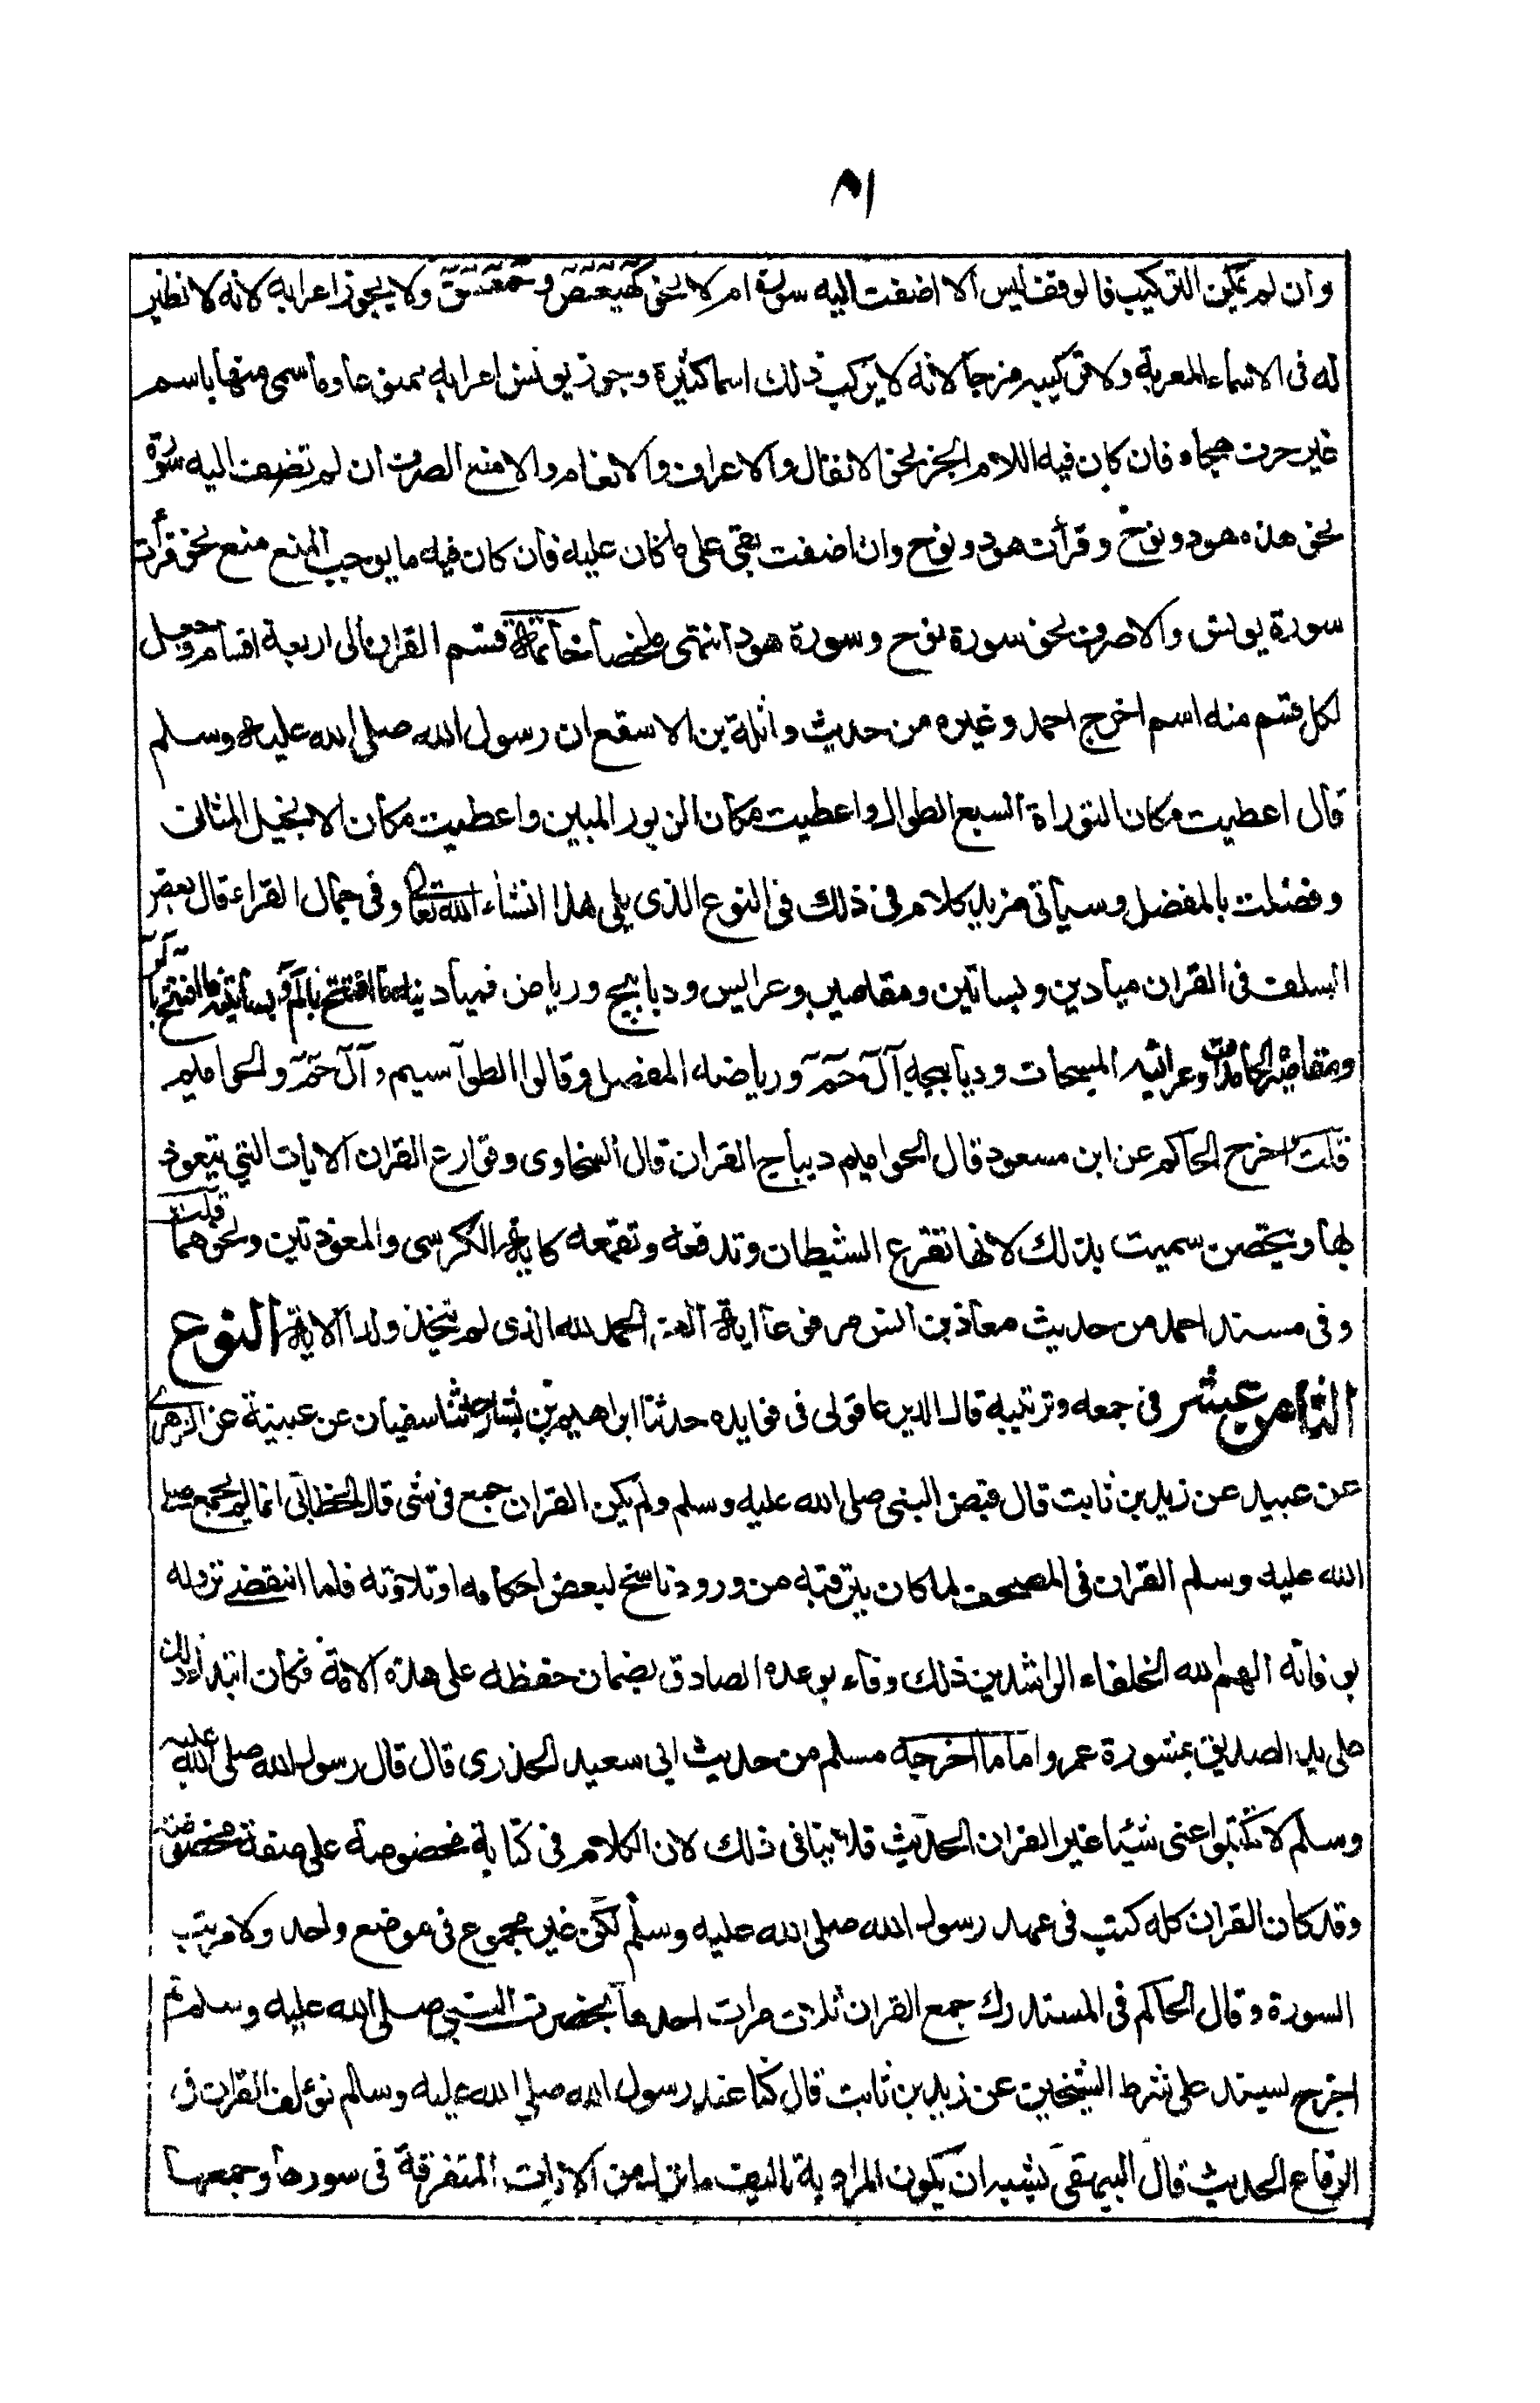 ٨١
وان لم يمكن التركيب فالوقف ليس الا اضفت اليه سورة ام لا نحو كهيعص وحمعسق ولا يجوز اعرابه لانه لا نظير
له فى الاسماء المعربة ولا تركيبه مزجا لانه لا يركب ذلك اسما كثيرة وجوز يونس اعرابه ممنوعا وما سمى منها باسم
غير حرف هجاء فان كان فيه اللام الجر نحو الانفال والاعراف والانعام والا منع الصرف ان لم تضف اليه سورة
نحو هذه هود ونوح وقرأت هود ونوح وان اضفت بقى على ما كان عليه فان كان فيه ما يوجب المنع منع نحو قرأت
سورة يونس والا صرف نحو سورة نوح وسورة هود انتهى ملخصا خاتمة قسم القران الى اربعة اقسام وجعل
لكل قسم منه اسم اخرج احمد وغيره من حديث واثلة بن الاسقع ان رسول الله صلى الله عليه وسلم
قال اعطيت مكان التوراة السبع الطوال واعطيت مكان الزبور المبين واعطيت مكان الانجيل المثانى
وفضلت بالمفصل وسيأتى مزيد كلام فى ذلك فى النوع الذى يلى هذا انشاء الله تعالى وفى جمال القراء قال بعض
السلف فى القران ميادين وبساتين ومقاصير وعرايس وديابيج ورياض فميادينه ما افتتح بالم وبساتينه ما افتتح بالر
ومقاصيره الحامدات وعرائسه المسبحات وديابيجه آل حم ورياضه المفصل وقالوا الطواسيم وآل حم والحواميم
قلت اخرج الحاكم عن ابن مسعود قال الحواميم ديباج القران قال السخاوى وقوارع القران الايات التى يتعوذ
بها ويتحصن سميت بذلك لانها تقرع الشيطان وتدفعه وتقمعه كاية الكرسى والمعوذتين ونحوهما قلت
وفى مسند احمد من حديث معاذ بن انس مرفوعا اية العز الحمد لله الذى لم يتخذ ولدا الاية النوع
الثامن عشر فى جمعه وترتيبه قال الدير عاقولى فى فوايده حدثنا ابراهيم بن بشار حدثنا سفيان عن عيينة عن الزهرى
عن عبيد عن زيد بن ثابت قال قبض النبى صلى الله عليه وسلم ولم يكن القران جمع فى شى قال الخطابى انما لم يجمع صلى
الله عليه وسلم القران فى المصحف لما كان يترقبه من ورود ناسخ لبعض احكامه او تلاوته فلما انقضى نزوله
بوفاته الهم الله الخلفاء الراشدين ذلك وفاء بوعده الصادق بضمان حفظه على هذه الامة فكان ابتداء ذلك
على يد الصديق بمشورة عمر واما ما اخرجه مسلم من حديث ابى سعيد الخدرى قال قال رسول الله صلى الله عليه
وسلم لا تكتبوا عنى شيئا غير القران الحديث فلا ينافى ذلك لان الكلام فى كتابة مخصوصة على صفة مخصوصة
وقد كان القران كله كتب فى عهد رسول الله صلى الله عليه وسلم لكن غير مجموع فى موضع واحد ولا مرتب
السورة وقال الحاكم فى المستدرك جمع القران ثلاث مرات احدها بحضرت النبى صلى الله عليه وسلم ثم
اخرج بسند على شرط الشيخين عن زيد بن ثابت قال كنا عند رسول الله صلى الله عليه وسلم نؤلف القران فى
الرقاع الحديث قال البيهقى يشبه ان يكون المراد به تاليف ما نزل من الايات المتفرقة فى سورها وجمعها